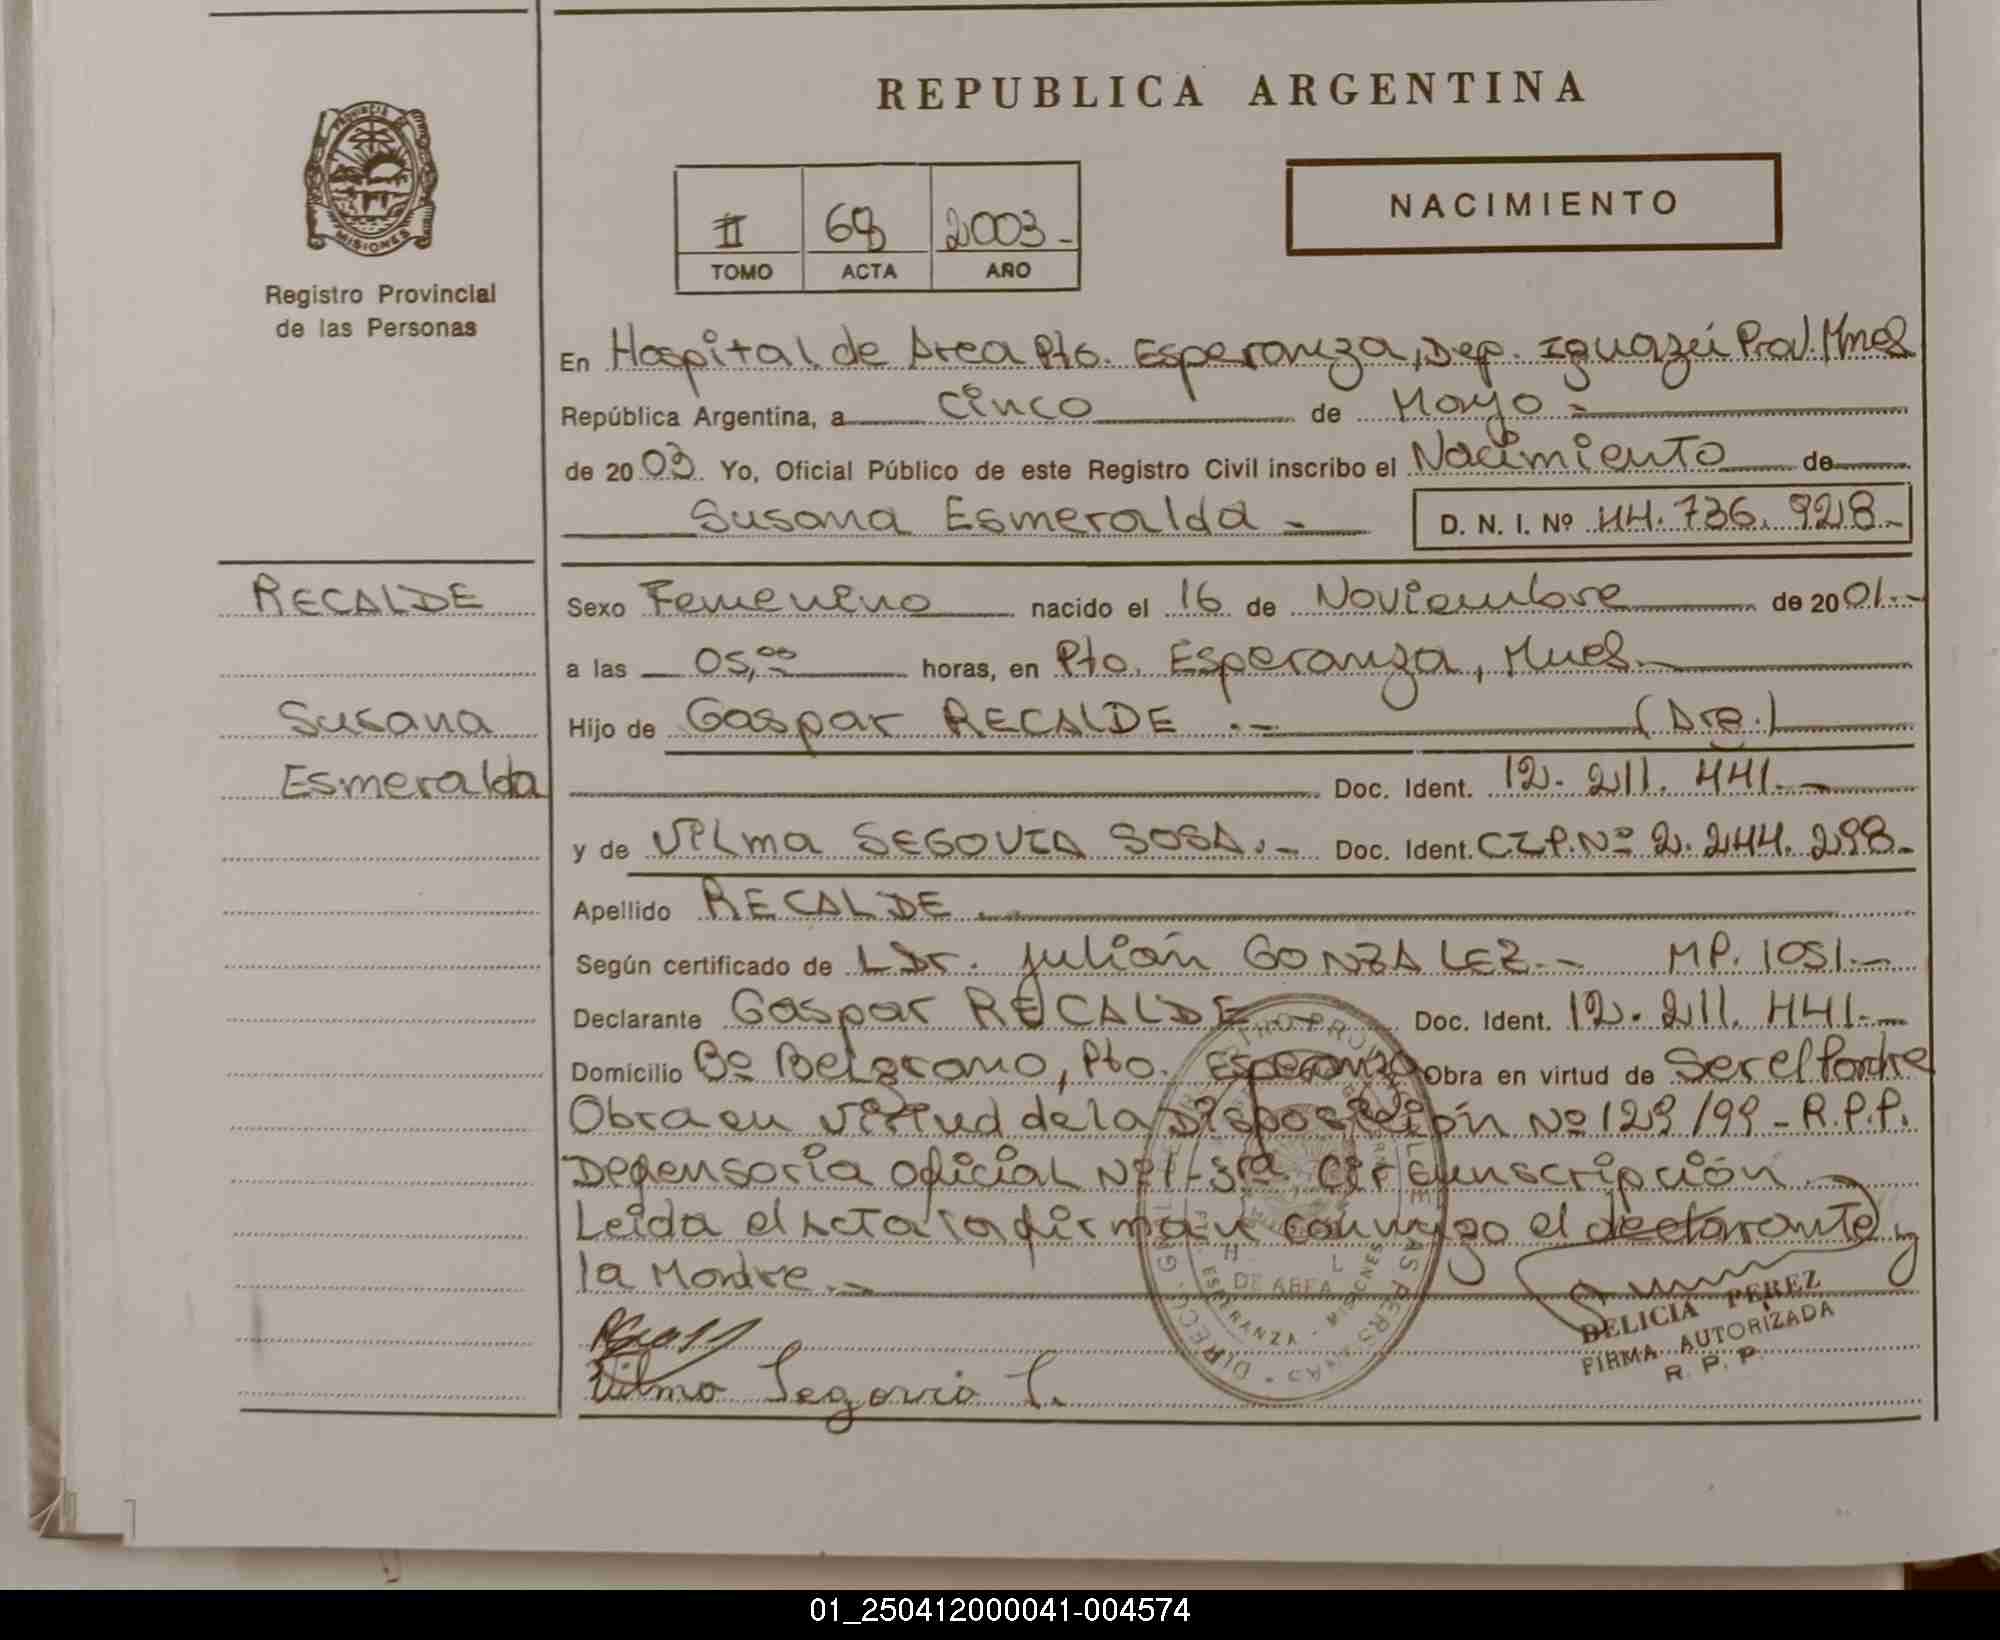 REPUBLICA ARGENTINA
PROVINCIA
MISIONES
Registro Provincial
de las Personas
II 68 2003-
TOMO ACTA AÑO
NACIMIENTO
En Hospital de Area Pto. Esperanza, Dep. Iguazú Prov. Mnes
República Argentina, a cinco de Mayo -
de 2003. Yo, Oficial Público de este Registro Civil inscribo el Nacimiento de
Susana Esmeralda - D. N. I. Nº 44.736.928-
RECALDE
Susana
Esmeralda
Sexo Femenino nacido el 16 de Noviembre de 2001.-
a las 05,00 horas, en Pto. Esperanza, Mnes.-
Hijo de Gaspar RECALDE .- (Arg.)
Doc. Ident. 12.211.441.-
y de Vilma SEGOVIA SOSA.- Doc. Ident. C.I.P.Nº 2.244.298.-
Apellido RECALDE .-
Según certificado de Dr. Julián GONZALEZ.- MP. 1051.-
Declarante Gaspar RECALDE - Doc. Ident. 12.211.441.-
Domicilio Bº Belgrano, Pto. Esperanza Obra en virtud de Ser el Padre
Obra en virtud de la Disposición Nº 129/99 - R.P.P.
Defensoria Oficial Nº1-3ra Circunscripción.-
Leida el Acta la firman conmigo el declarante y
la Madre.-
Vilma Segovia S.
DE AREA
ESPERANZA - MISIONES
DELICIA PEREZ
FIRMA AUTORIZADA
R. P. P.
01_250412000041-004574